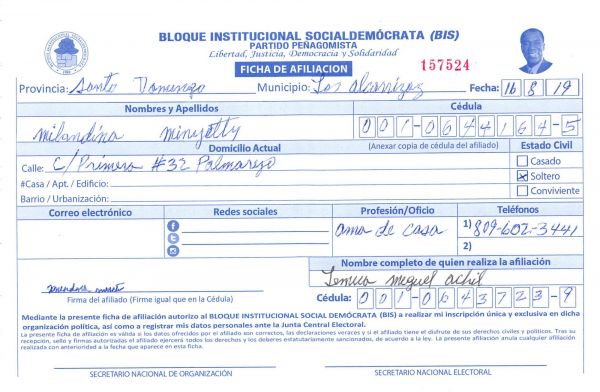 BLOQUE INSTITUCIONAL SOCIALDEMÓCRATA (BIS)
PARTIDO PEÑAGOMISTA
Libertad, Justicia, Democracia y Solidaridad
FICHA DE AFILIACION
157524
Provincia: Santo Domingo Municipio: Los Alcarrizos Fecha: 16 8 19
Nombres y Apellidos Cédula
Milandina Minyetty 001-0644164-5
Domicilio Actual (Anexar copia de cédula del afiliado) Estado Civil
Calle: C/ Primera #32 Palmarejo Casado
#Casa / Apt. / Edificio: Soltero
Barrio / Urbanización: Conviviente
Correo electrónico Redes sociales Profesión/Oficio Teléfonos
ama de casa 1) 809-602-3441
2)
Nombre completo de quien realiza la afiliación
miguel
Firma del afiliado (Firme igual que en la Cédula) Cédula: 001-0643723-9
Mediante la presente ficha de afiliación autorizo al BLOQUE INSTITUCIONAL SOCIAL DEMÓCRATA (BIS) a realizar mi inscripción única y exclusiva en dicha
organización política, así como a registrar mis datos personales ante la Junta Central Electoral.
La presente ficha de afiliación es válida si los datos ofrecidos por el afiliado son correctos, las declaraciones veraces y si el afiliado tiene el disfrute de sus derechos civiles y políticos. Tras su
recepción, sello y firmas autorizadas el afiliado ejercerá todos los derechos y los deberes estatutariamente sancionados, de acuerdo a la ley. La presente afiliación anula cualquier afiliación
realizada con anterioridad a la fecha que aparece en esta ficha.
SECRETARIO NACIONAL DE ORGANIZACIÓN SECRETARIO NACIONAL ELECTORAL